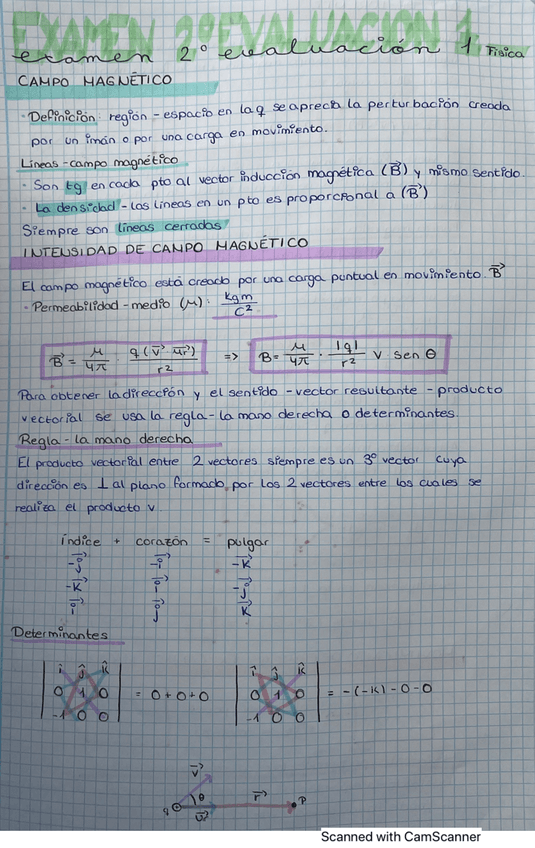 EXAMEN 2ºEVALUACIÓN 1
examen 2º evaluación 1 Física
CAMPO MAGNÉTICO
· Definición: región - espacio en la q se aprecia la perturbación creada
por un imán o por una carga en movimiento.
Líneas - campo magnético
· Son tg en cada pto al vector inducción magnética (B⃗) y mismo sentido.
· La densidad - las líneas en un pto es proporcional a (B⃗)
Siempre son líneas cerradas
INTENSIDAD DE CAMPO MAGNÉTICO
El campo magnético está creado por una carga puntual en movimiento. B⃗
· Permeabilidad - medio (μ): kg m / C²
B⃗ = μ/4π · q(v⃗ · ur⃗)/r² => B = μ/4π · |q|/r² v sen θ
Para obtener la dirección y el sentido - vector resultante - producto
vectorial se usa la regla - la mano derecha o determinantes
Regla - la mano derecha
El producto vectorial entre 2 vectores siempre es un 3º vector cuya
dirección es ⊥ al plano formado por los 2 vectores entre los cuales se
realiza el producto v.
índice + corazón = pulgar
-j⃗ -i⃗ -k⃗
-k⃗ i⃗ -j⃗
i⃗ j⃗ k⃗
Determinantes
| î ĵ k̂ | | î ĵ k̂ |
| 0 1 0 | = 0 + 0 + 0 | 0 1 0 | = -(-k) - 0 - 0
| -1 0 0 | | -1 0 0 |
v⃗
θ r⃗ P
q
Scanned with CamScanner